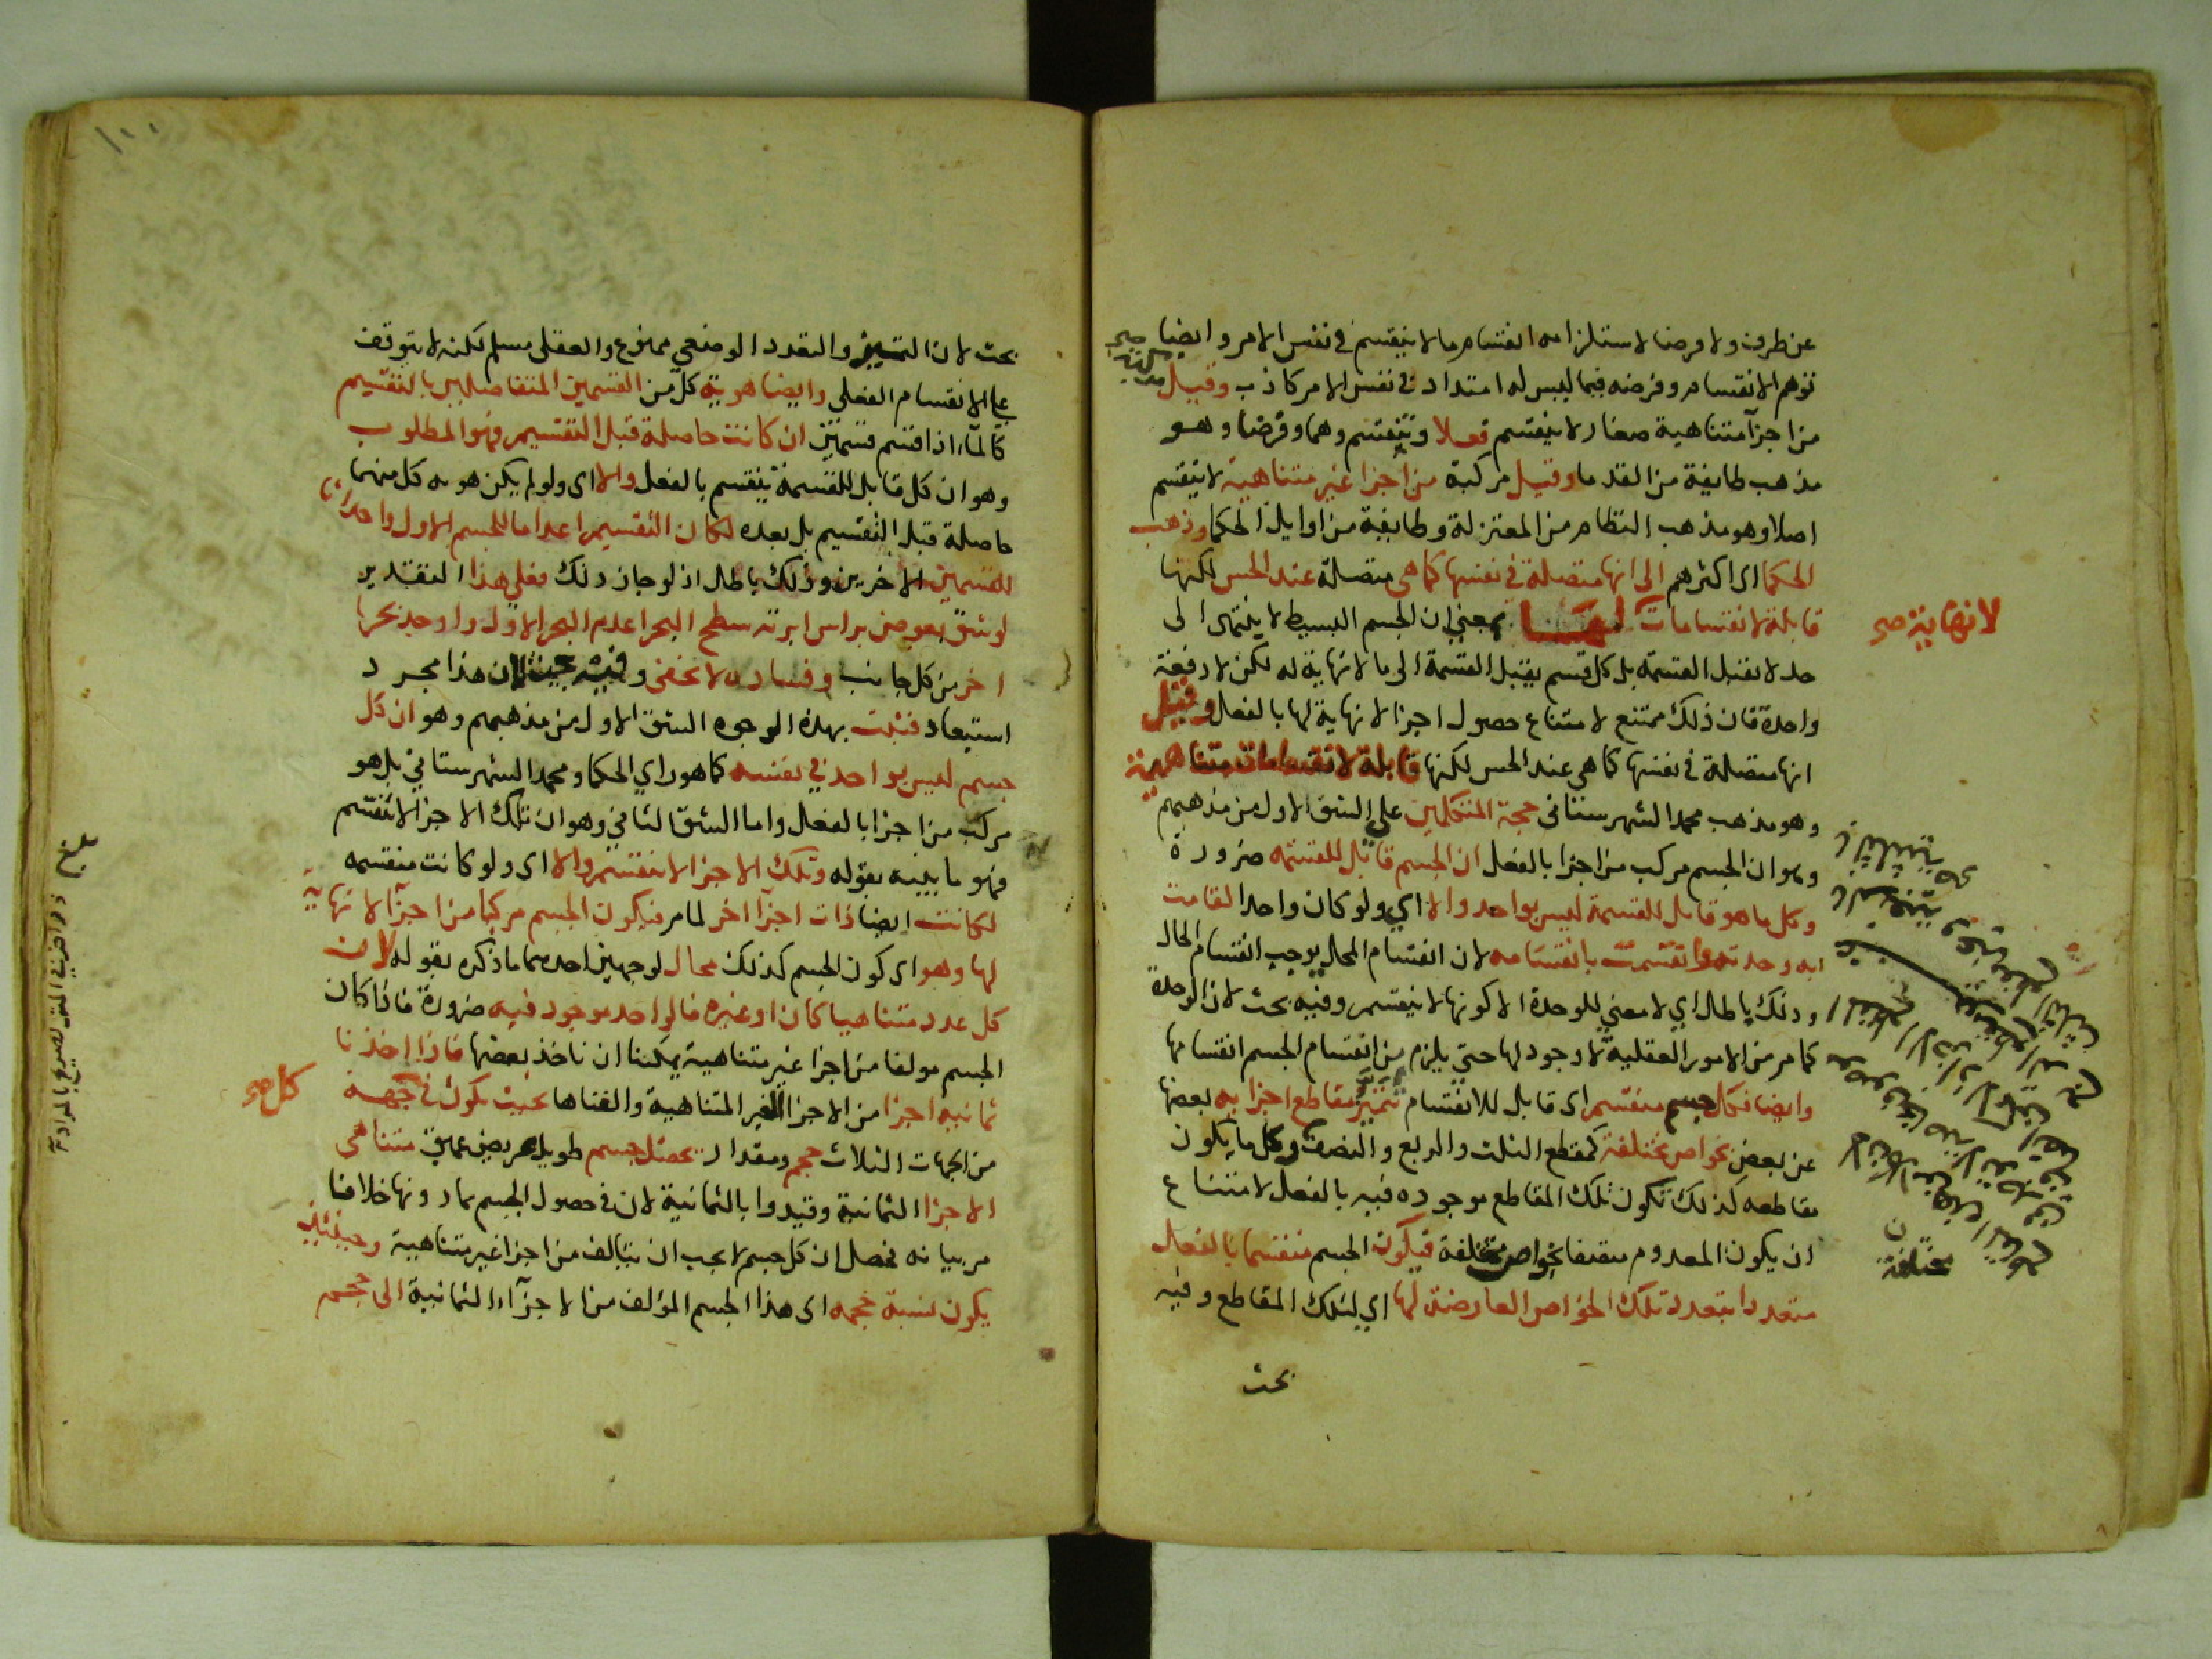 عن طرف ولا فرضا لاستلزامه انقسام ما لا ينقسم في نفس الامر وايضا صح
توهم الانقسام وفرضه فيما ليس له امتداد في نفس الامر كاذب وقيل مركبة
من اجزآ متناهية صغار لا ينقسم فعلا وتنقسم وهما وفرضا وهو
مذهب طايفة من القدما وقيل مركبة من اجزا غير متناهية لا ينقسم
اصلا وهو مذهب النظام من المعتزلة وطايفة من اوايل الحكما وذهب
الحكما اى اكثرهم الى انها متصلة في نفسها كما هى متصلة عند الحس لكنها
قابلة لانقسامات بمعني ان الجسم البسيط لا ينتهى الى
لا نهاية صح
حد لا يقبل القسمة بل كل قسم يقبل القسمة الى ما لا نهاية له لكن لا دفعة
واحدة فان ذلك ممتنع لامتناع حصول اجزا لا نهاية لها بالفعل وقيل
انها متصلة في نفسها كما هى عند الحس لكنها قابلة لانقسامات متناهية
وهو مذهب محمد الشهرستانى حجة المتكلمين على الشق الاول من مذهبهم
وهو ان الجسم مركب من اجزا بالفعل ان الجسم قابل للقسمة ضرورة
وكل ما هو قابل للقسمة ليس بواحد والا اي ولو كان واحدا لقامت
به وحدته وانقسمت بانقسامه لان انقسام المحل يوجب انقسام الحال
وذلك باطل اي لا معني للوحدة الا كونها لا ينقسم وفيه بحث لان الوحدة
كما مر من الامور العقلية لا وجود لها حتى يلزم من انقسام الجسم انقسامها
وايضا فكل جسم منقسم اى قابل للانقسام تتميز مقاطع اجزايه بعضها
عن بعض بخواص مختلفة كمقطع الثلث والربع والنصف وكل ما يكون
مقاطعه كذلك تكون تلك المقاطع موجوده فيه بالفعل لامتناع
ان يكون المعدوم متصفا بخواص مختلفة فيكون الجسم منقسما بالفعل
متعددا بتعدد تلك الخواص العارضة لها اي لتلك المقاطع وفيه
بحث
بحث لان التميز والتعدد الوضعي ممنوع والعقلى مسلم لكنه لا يتوقف
على الانقسام الفعلى وايضا هوية كل من القسمين المتفاصلين بالتقسيم
كالمآء اذا قسم قسمين ان كانت حاصلة قبل التقسيم فهو المطلوب
وهو ان كل قابل للقسمة ينقسم بالفعل والا اى ولو لم يكن هوية كل منهما
حاصلة قبل التقسيم بل بعده لكان التقسيم اعداما للجسم الاول واحداثا
للقسمين الاخرين وذلك باطل اذ لو جاز ذلك فعلي هذا التقدير
لو شق بعوض براس ابرته سطح البحر اعدم البحر الاول واوجد بحرا
اخر من كل جانب وفساده لا يخفى وفيه بحث لان هذا مجرد
استبعاد فثبت بهذه الوجوه الشق الاول من مذهبهم وهو ان كل
جسم ليس بواحد في نفسه كما هو راي الحكما ومحمد الشهرستاني بل هو
مركب من اجزا بالفعل واما الشق الثاني وهو ان تلك الاجزا لا تنقسم
فهو ما بينه بقوله وتلك الاجزا لا تنقسم والا اى ولو كانت منقسمة
لكانت ايضا ذات اجزآ اخر لما مر فيكون الجسم مركبا من اجزآ لا نهاية
لها وهو اى كون الجسم كذلك محال لوجهين احدهما ما ذكره بقوله لان
كل عدد متناهيا كان او غيره فالواحد موجود فيه ضرورة فاذا كان
الجسم مولفا من اجزا غير متناهية يمكننا ان ناخذ بعضها فاذا اخذنا
ثمانية اجزا من الاجزا الغير المتناهية والفناها بحيث تكون في جهة
كل صح
من الجهات الثلاث حجم ومقدار يحصل جسم طويل عريض عميق متناهى
الاجزا الثمانية وقيدوا بالثمانية لان في حصول الجسم بما دونها خلافا
مر بيانه فحصل ان كل جسم لا يجب ان يتالف من اجزا غير متناهية وحينئذ
يكون نسبة حجمه اى هذا الجسم المؤلف من الاجزآء الثمانية الى حجم
بلغ